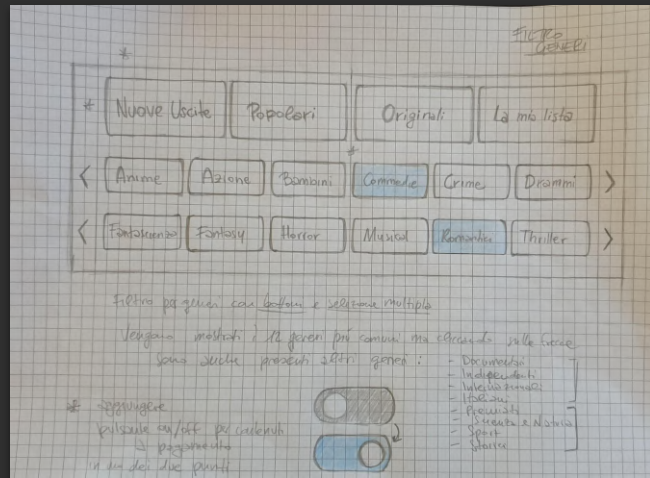 FILTRO
GENERI
*
* Nuove Uscite Popolari Originali La mia lista
*
< Anime Azione Bambini Commedie Crime Drammi >
< Fantascienza Fantasy Horror Musical Romantici Thriller >
Filtro per generi con bottoni e selezione multipla
Vengono mostrati i 12 generi più comuni ma cliccando sulle frecce
sono anche presenti altri generi:
- Documentari
- Indipendenti
- Internazionali
- Italiani
- Premiati
- Scienza e Natura
- Sport
- Storici
* aggiungere
pulsante on/off per contenuti
a pagamento
in uno dei due punti